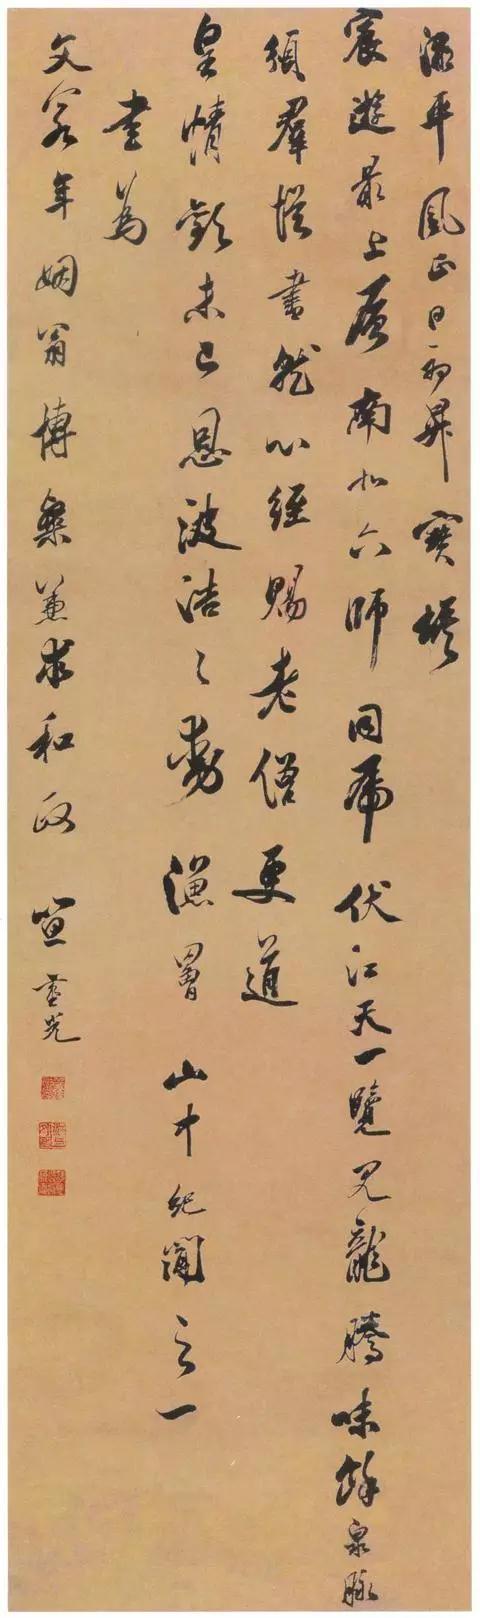 平風正日初昇寶塔
宸遊最上層南北六師同虎伏江天一覽見龍騰味餘泉脉
頒羣從書就心經賜老僧更道
皇情歡未已恩波浩々動漁罾山中紀聞之一
書為
文年姻翁博粲兼求和政笪重光